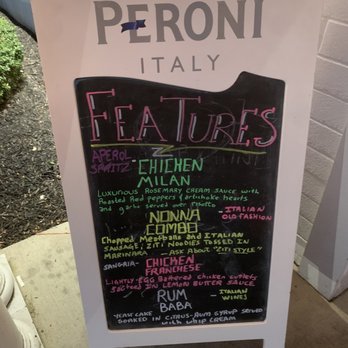 PERONI
ITALY
FEATURES
APEROL SPRITZ - CHICKEN
MILAN
LUXURIOUS ROSEMARY CREAM SAUCE with
Roasted Red peppers & artichoke hearts
and garlic served over risotto
NONNA - ITALIAN
COMBO OLD FASHION
Chopped Meatballs and ITALIAN
SAUSAGE, ZITI NOODLES TOSSED IN
MARINARA - ASK ABOUT "ZITI STYLE"
SANGRIA- CHICKEN
FRANCHESE
LIGHTLY-EGG Bathered chicken cutlets
SAUTEED IN LEMON BUTTER SAUCE
RUM - ITALIAN
BABA WINES
YEAST CAKE
SOAKED IN CITRUS-RUM SYRUP SERVED
with whip cream